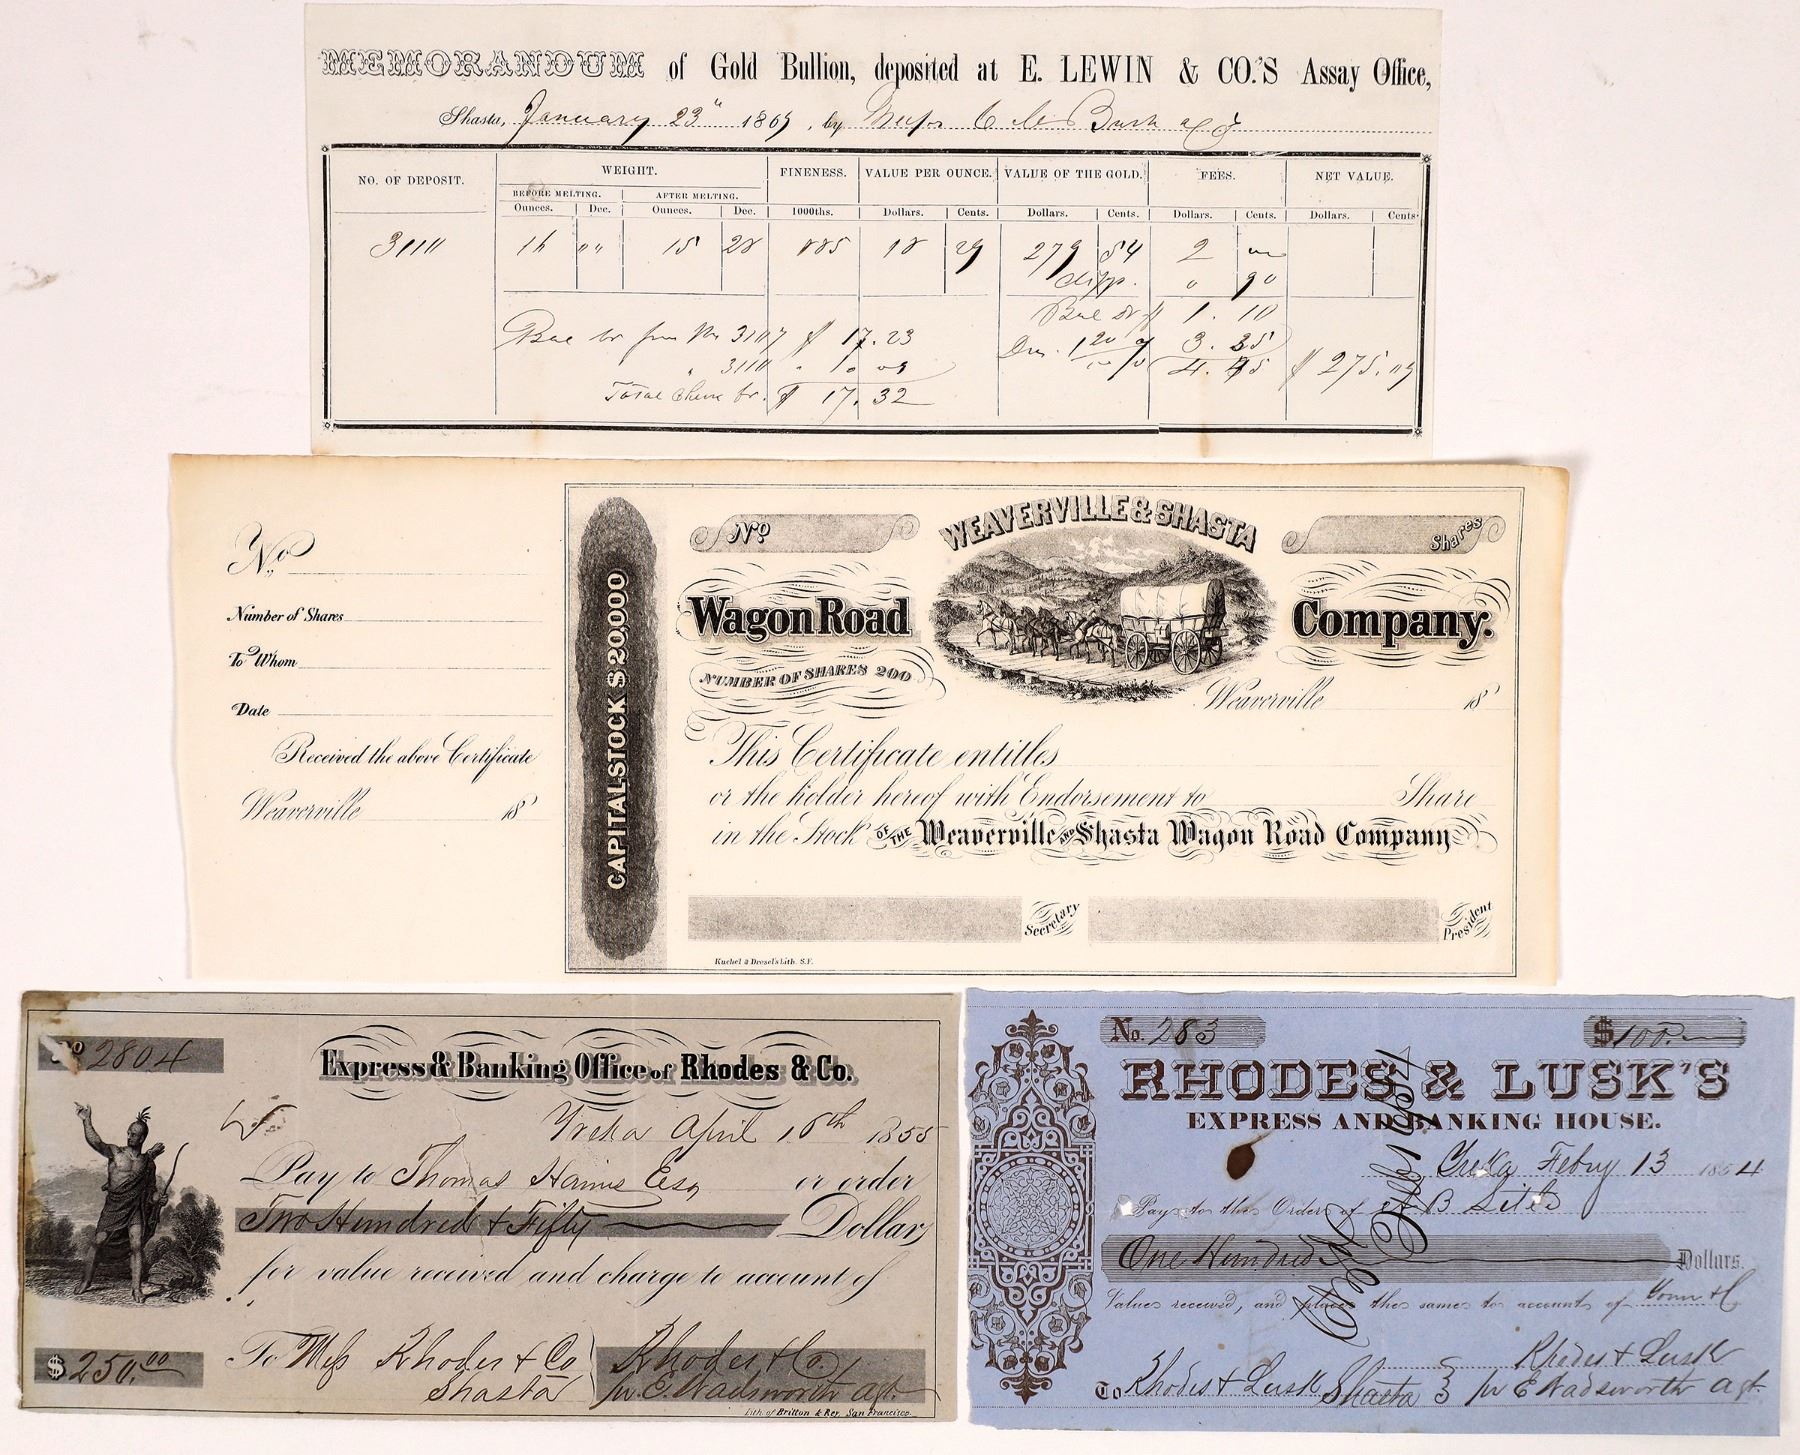 MEMORANDUM of Gold Bullion, deposited at E. LEWIN & CO.'S Assay Office,
Shasta, January 23" 186, by C Bush
NO. OF DEPOSIT. WEIGHT. FINENESS. VALUE PER OUNCE. VALUE OF THE GOLD. FEES. NET VALUE.
BEFORE MELTING. AFTER MELTING.
Ounces. Dec. Ounces. Dec. 1000ths. Dollars. Cents. Dollars. Cents. Dollars. Cents. Dollars. Cents.
3111 16 " 15 28 885 18 29 279 54 2
90
1.10
3107 $ 17.23
3111
3.35
4.45 $ 275.09
Total $ 17.32
No
Number of Shares
To Whom
Date
Received the above Certificate
Weaverville 18
CAPITAL STOCK $20,000
No. WEAVERVILLE & SHASTA Shares
Wagon Road Company.
NUMBER OF SHARES 200
Weaverville 18
This Certificate entitles
or the holder hereof with Endorsement to Share
in the Stock OF THE Weaverville AND Shasta Wagon Road Company
Secretary President
Kuchel & Dresel's Lith. S.F.
No 2804
Express & Banking Office of Rhodes & Co.
Yreka April 16th 1855
Pay to Thomas Hains Esq or order
Two Hundred & Fifty Dollars
for value received and charge to account of
To Mess Rhodes & Co Rhodes & Co
$250.00 Shasta pr E. Wadsworth agt
Lith. of Britton & Rey, San Francisco.
No. 283 $100.
RHODES & LUSK'S
EXPRESS AND BANKING HOUSE.
Yreka Febry 13 1854
Pay to the Order of B
One Hundred Dollars.
Value received, and place the same to account of
Rhodes & Lusk
To Rhodes & Lusk Shasta pr E Wadsworth Agt.